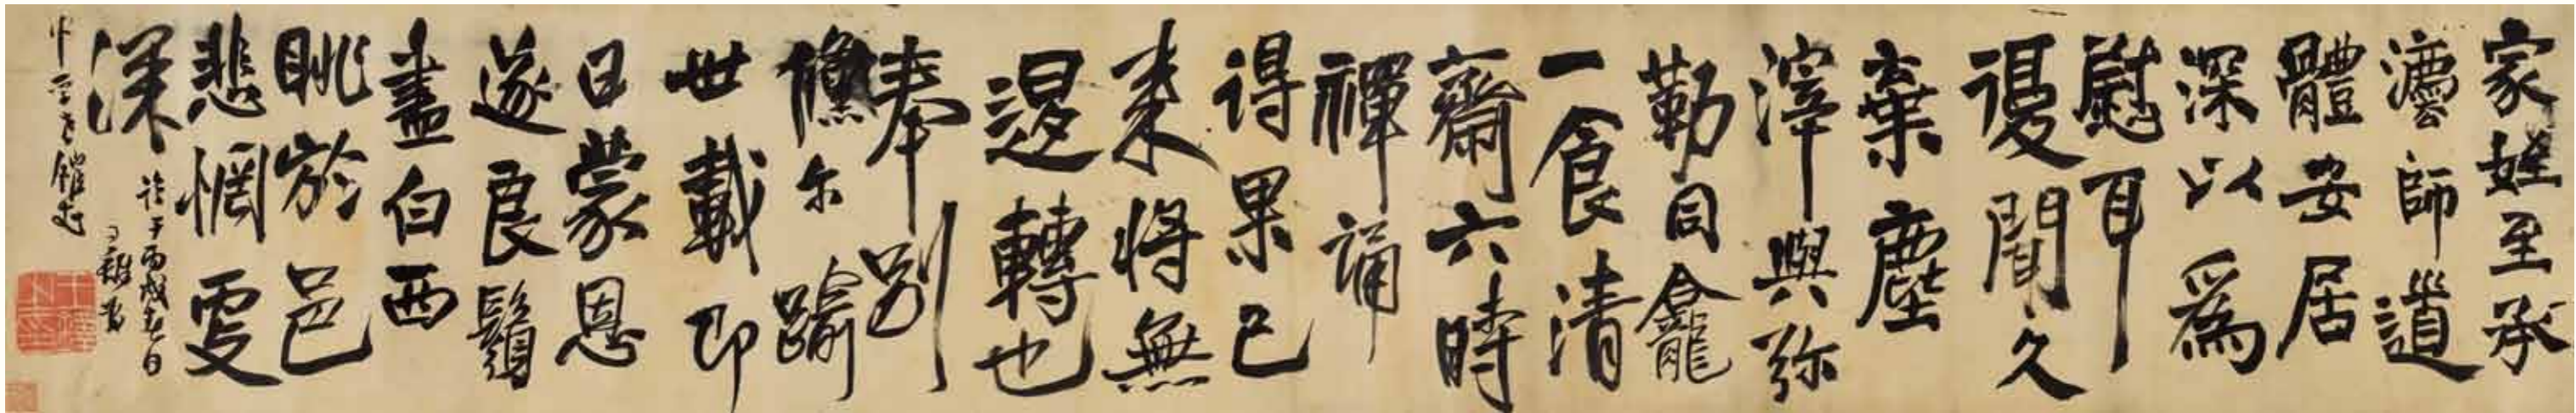 家姪至承
灋師道
體安居
深以爲
慰耳
復聞久
棄塵
滓與弥
勒同龕
一食清
齋六時
禪誦
得果已
来将無
退轉也
奉別
倏尔踰
世載即
日蒙恩
遂良鬚
盡白西
眺於邑
悲惘更
深
丙戌春日